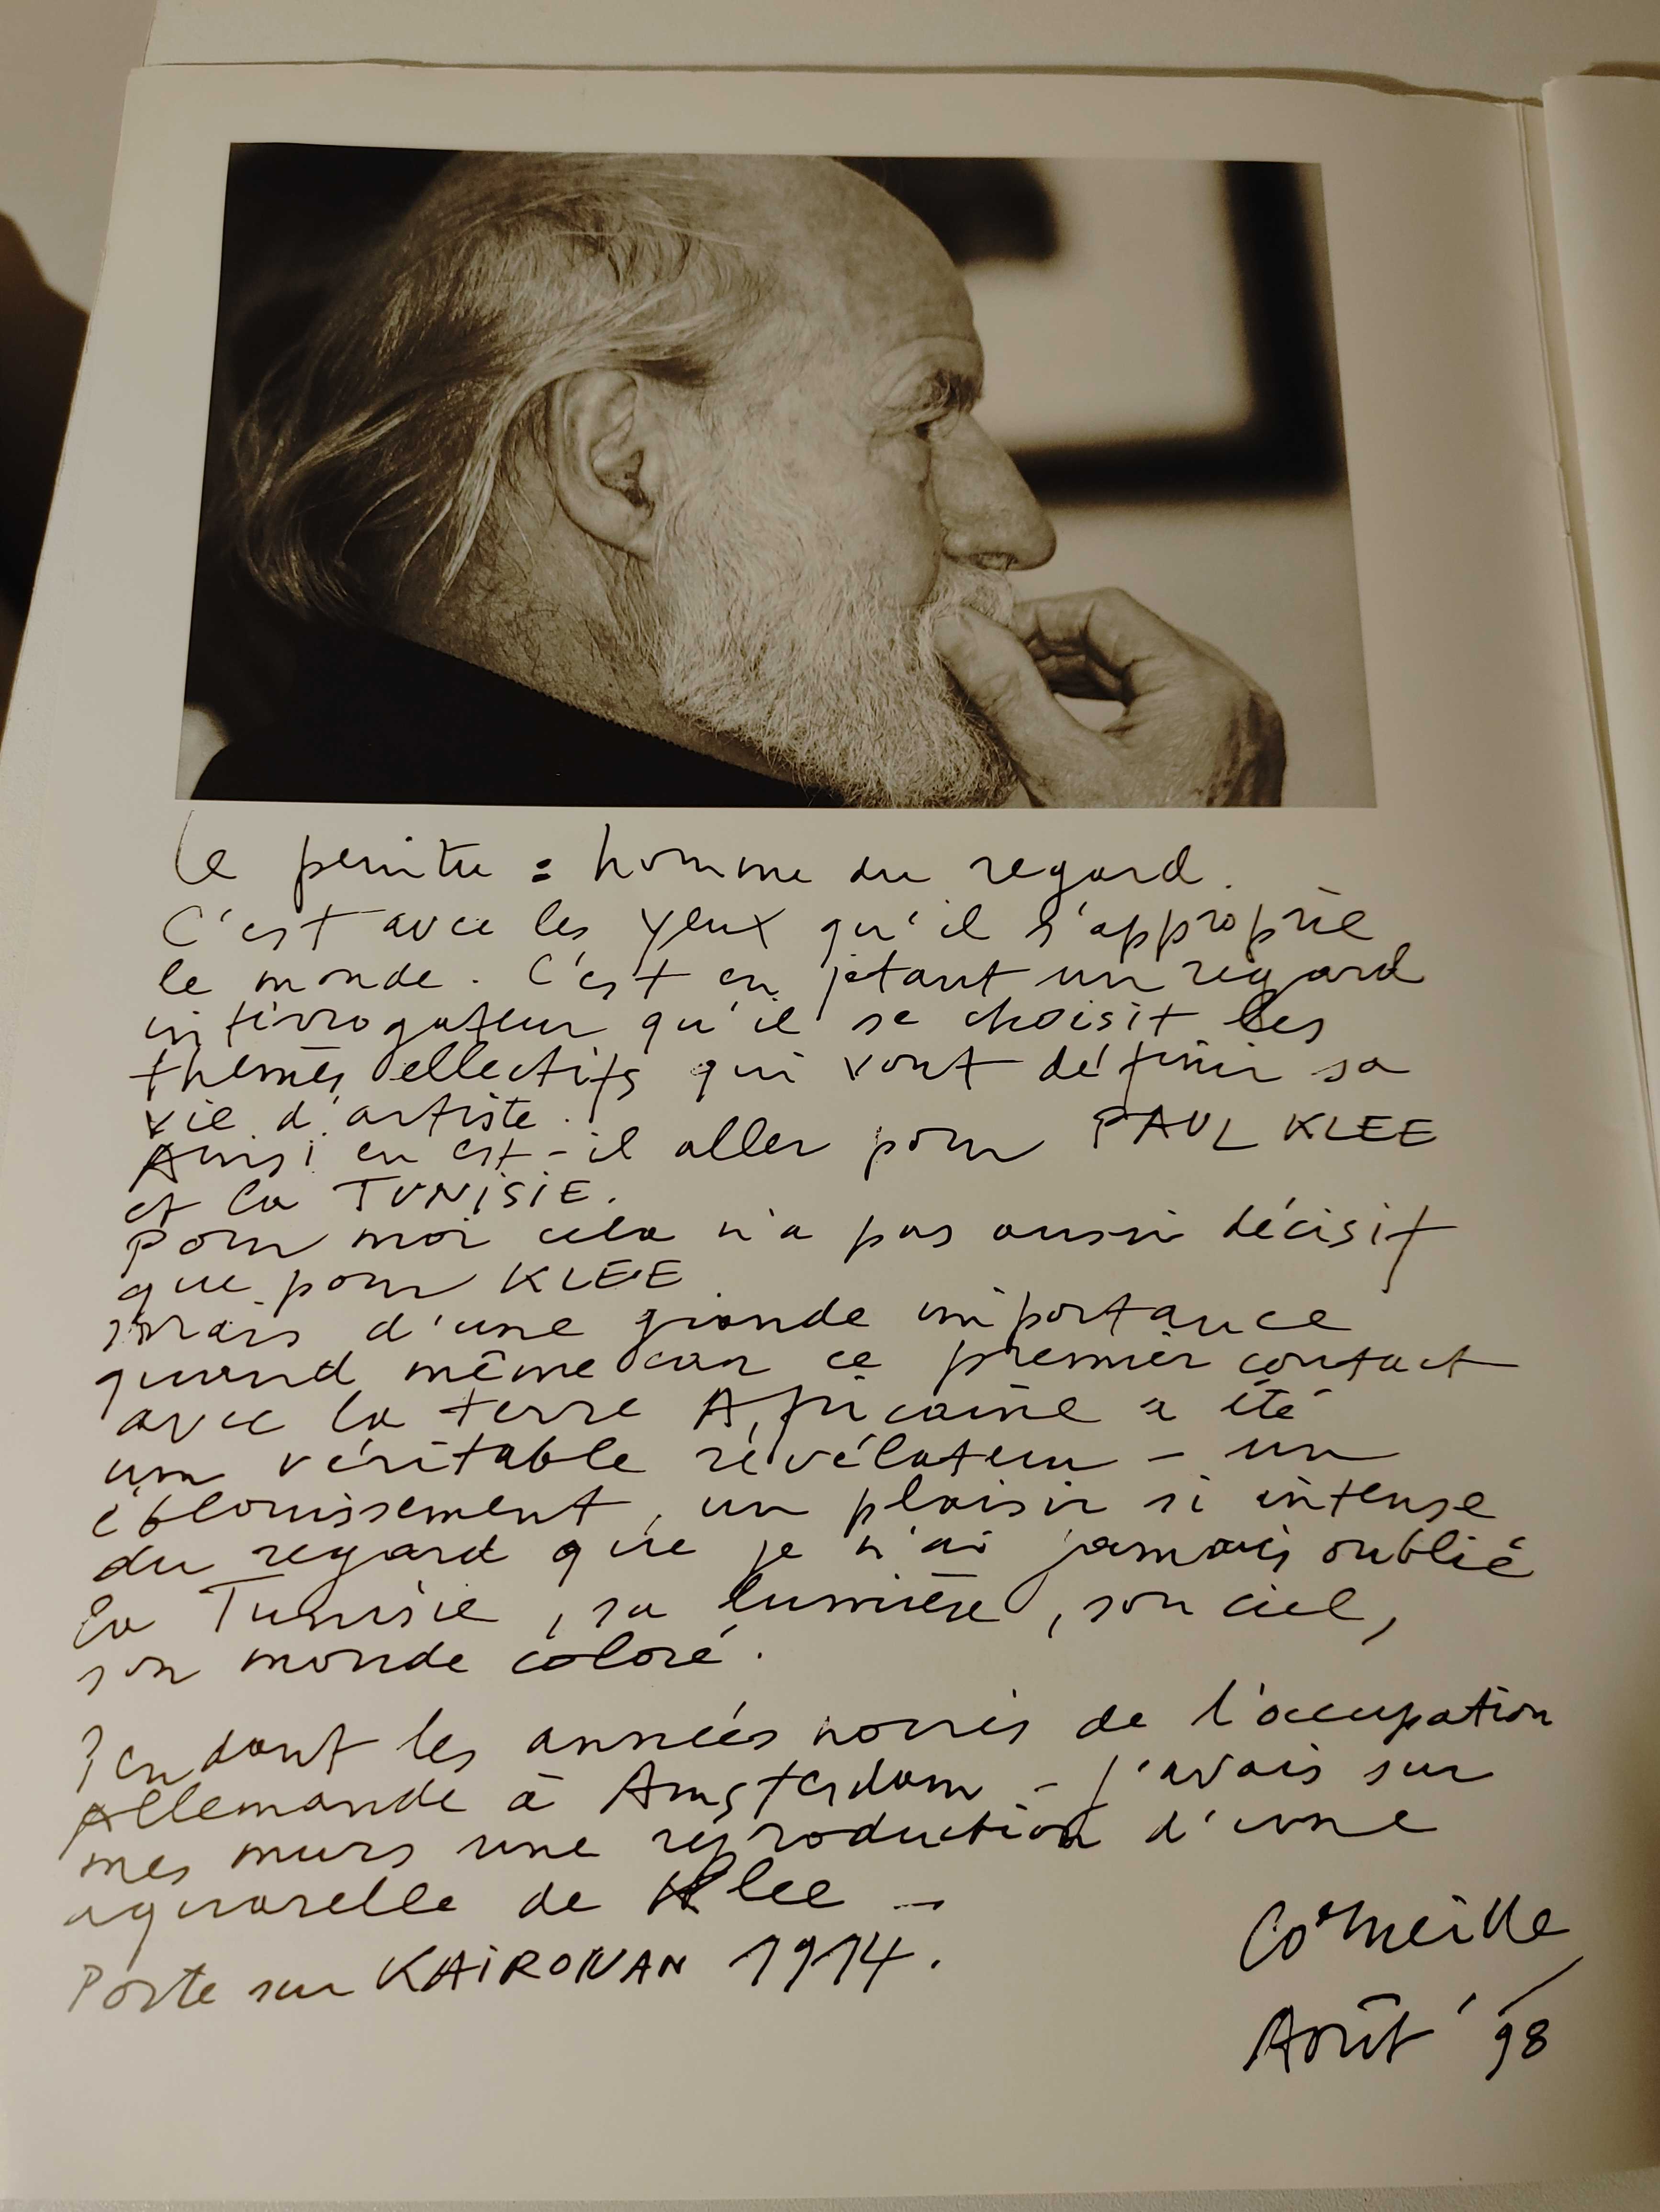 Le peintre : homme du regard.
C'est avec les yeux qu'il s'approprie
le monde. C'est en jetant un regard
interrogateur qu'il se choisit les
thèmes ellectifs qui vont définir sa
vie d'artiste.
Ainsi en est-il aller pour PAUL KLEE
et la TUNISIE.
Pour moi cela n'a pas aussi décisif
que pour KLEE
mais d'une grande importance
quand même car ce premier contact
avec la terre Africaine a été
un véritable révélateur - un
éblouissement, un plaisir si intense
du regard que je n'ai jamais oublié
la Tunisie, sa lumière, son ciel,
son monde coloré.
Pendant les années noires de l'occupation
Allemande à Amsterdam - j'avais sur
mes murs une réproduction d'une
aquarelle de Klee -
Porte sur KAIROUAN 1914.
Corneille
Août '98